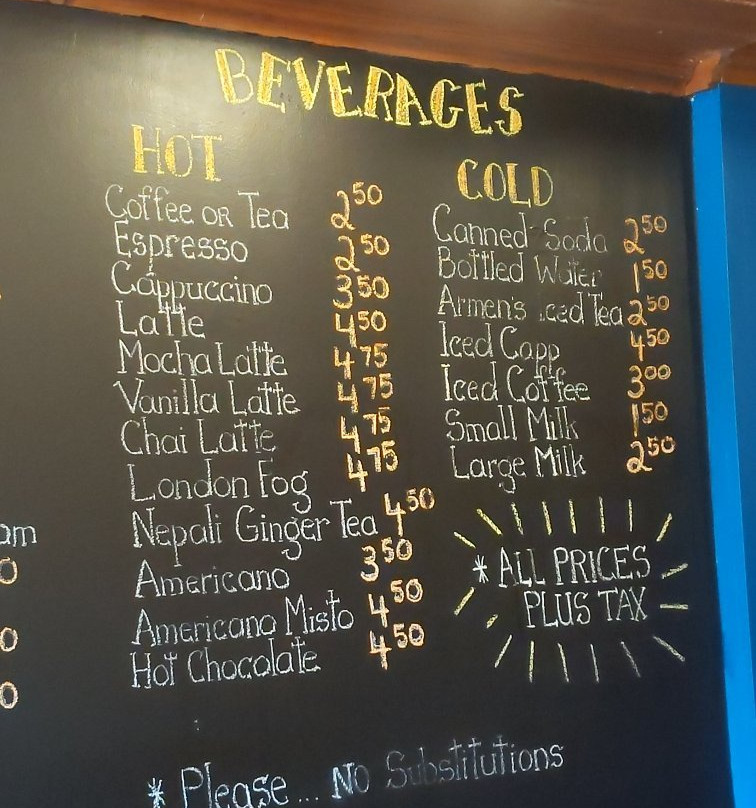 BEVERAGES
HOT
Coffee OR Tea 2.50
Espresso 2.50
Cappuccino 3.50
Latte 4.50
Mocha Latte 4.75
Vanilla Latte 4.75
Chai Latte 4.75
London Fog 4.75
Nepali Ginger Tea 4.50
Americano 3.50
Americano Misto 4.50
Hot Chocolate 4.50
COLD
Canned Soda 2.50
Bottled Water 1.50
Armen's Iced Tea 2.50
Iced Capp 4.50
Iced Coffee 3.00
Small Milk 1.50
Large Milk 2.50
* ALL PRICES
PLUS TAX
* Please... No Substitutions